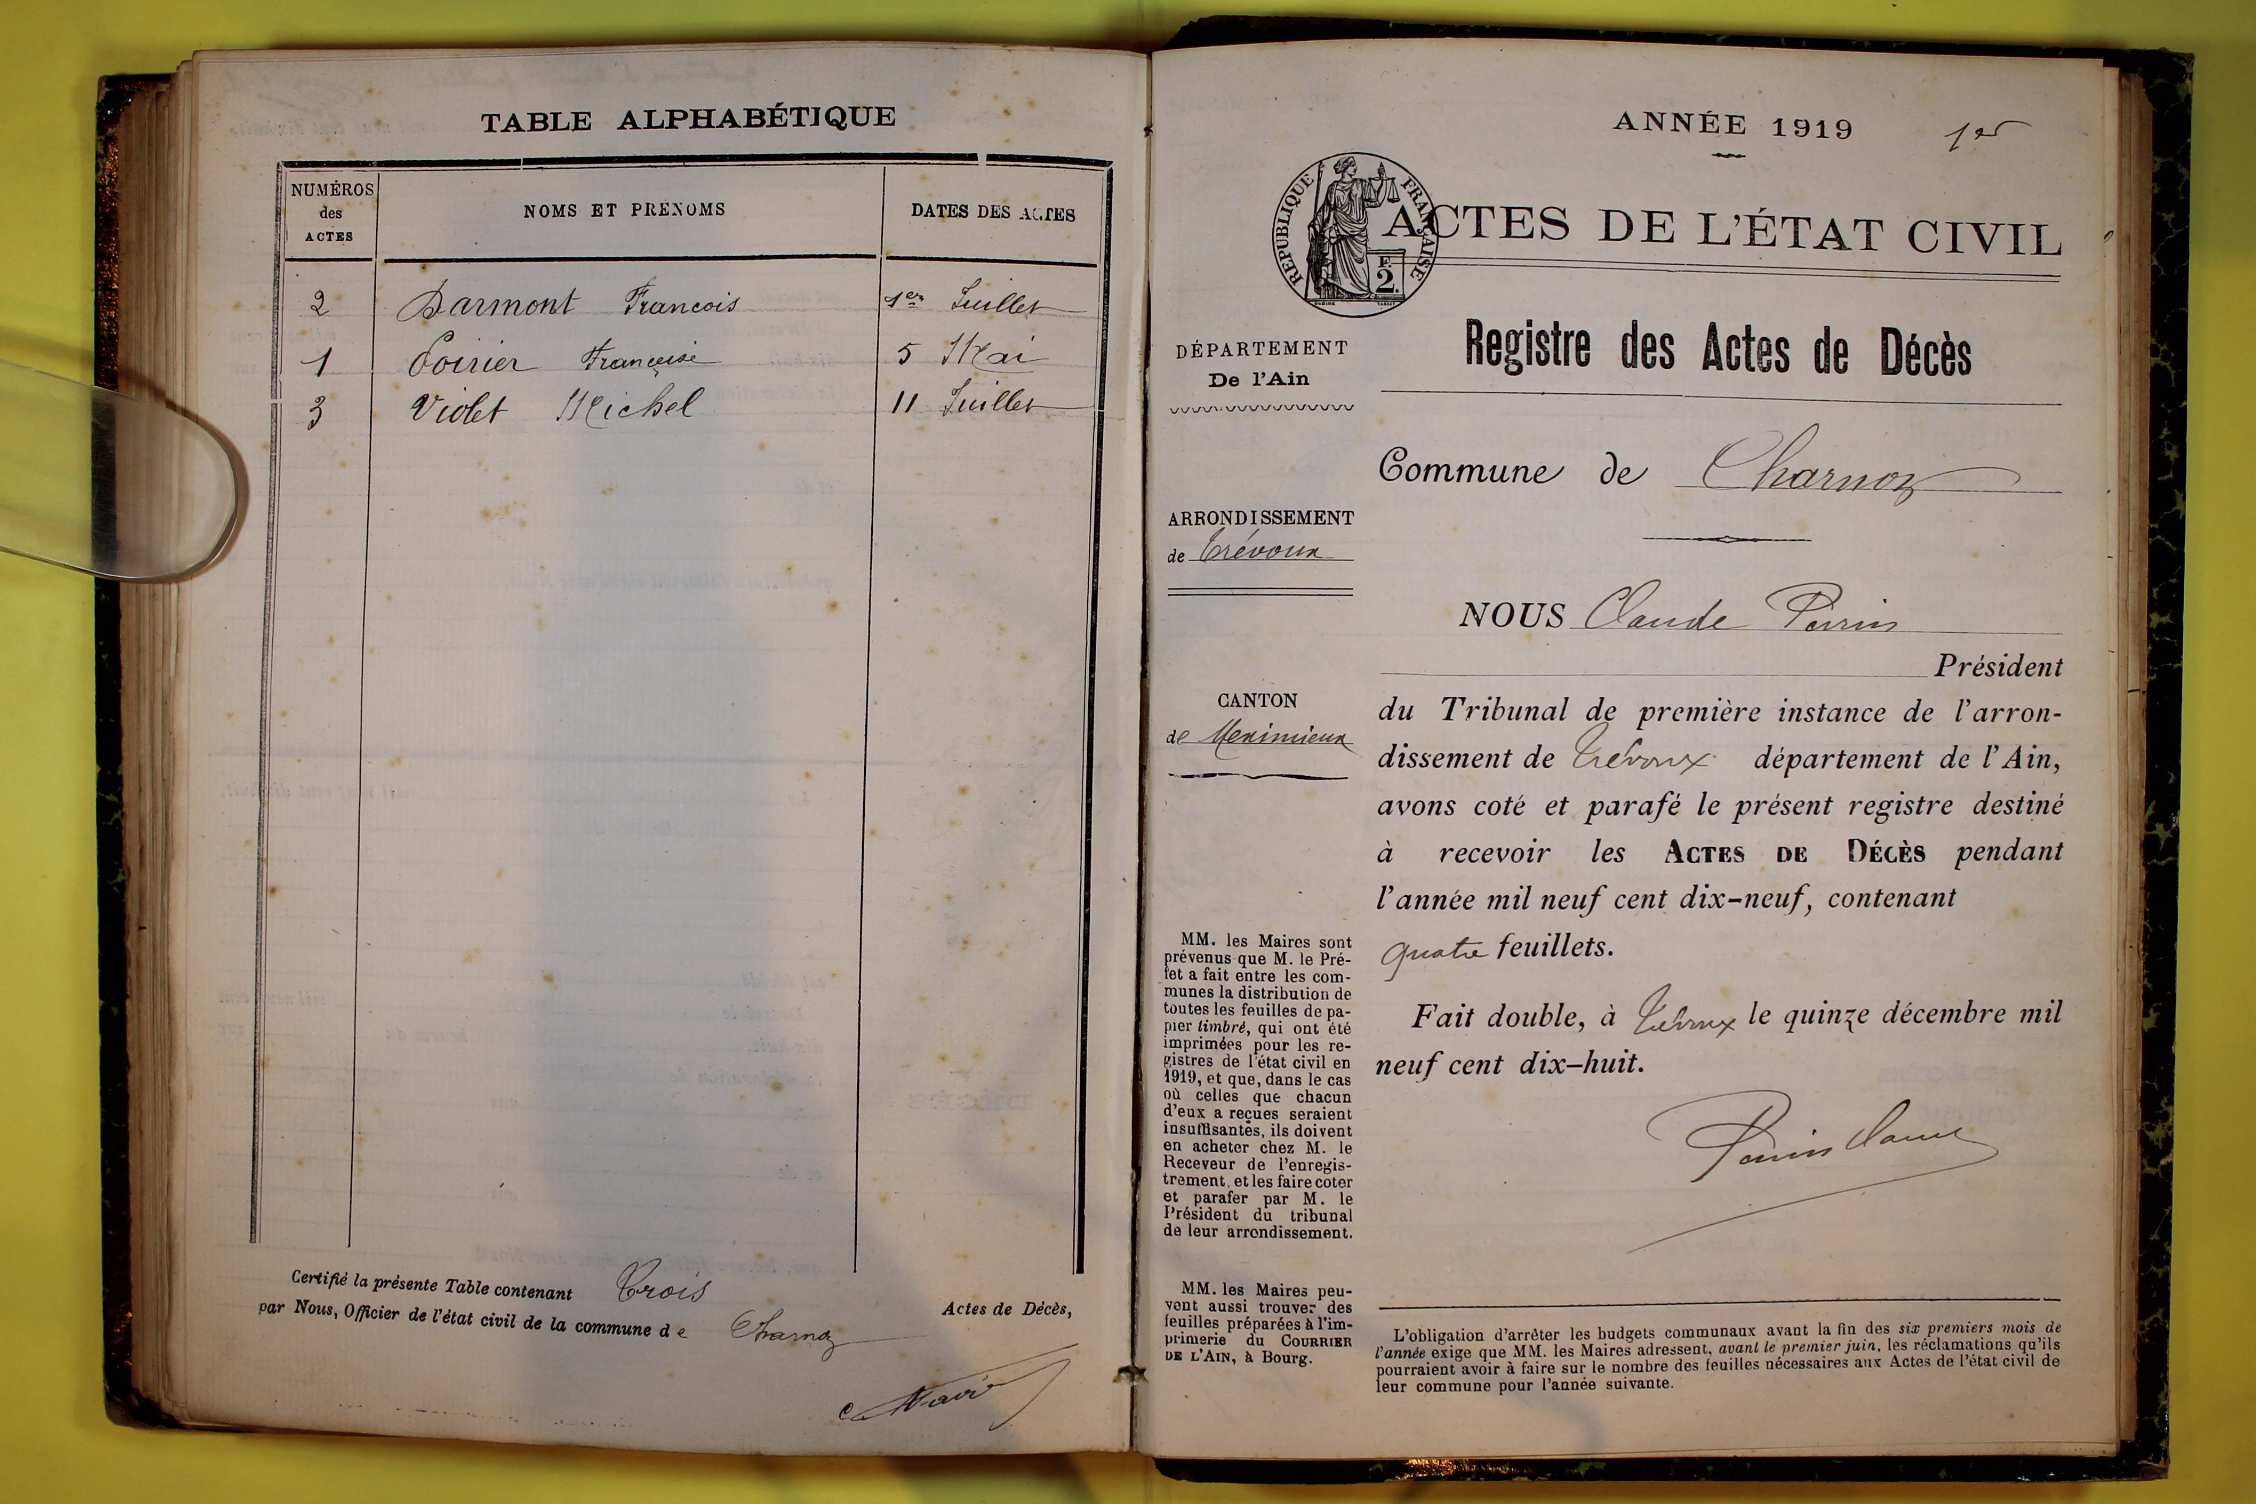 TABLE ALPHABÉTIQUE
NUMÉROS des ACTES
NOMS ET PRÉNOMS
DATES DES ACTES
2 Darmont Francois 1er Juillet
1 Poirier Françoise 5 Mai
3 Violet Michel 11 Juillet
Certifié la présente Table contenant Trois Actes de Décès,
par Nous, Officier de l'état civil de la commune de Charnoz
ANNÉE 1919 1er
RÉPUBLIQUE FRANÇAISE
F. 2.
ACTES DE L'ÉTAT CIVIL
Registre des Actes de Décès
DÉPARTEMENT
De l'Ain
Commune de Charnoz
ARRONDISSEMENT
de Trévoux
CANTON
de Meximieux
MM. les Maires sont
prévenus que M. le Pré-
fet a fait entre les com-
munes la distribution de
toutes les feuilles de pa-
pier timbré, qui ont été
imprimées pour les re-
gistres de l'état civil en
1919, et que, dans le cas
où celles que chacun
d'eux a reçues seraient
insuffisantes, ils doivent
en acheter chez M. le
Receveur de l'enregis-
trement, et les faire coter
et parafer par M. le
Président du tribunal
de leur arrondissement.
MM. les Maires peu-
vent aussi trouver des
feuilles préparées à l'im-
primerie du COURRIER
DE L'AIN, à Bourg.
NOUS Claude Perrin
Président
du Tribunal de première instance de l'arron-
dissement de Trévoux département de l'Ain,
avons coté et parafé le présent registre destiné
à recevoir les ACTES DE DÉCÈS pendant
l'année mil neuf cent dix-neuf, contenant
quatre feuillets.
Fait double, à Trévoux le quinze décembre mil
neuf cent dix-huit.
Perrin Claude
L'obligation d'arrêter les budgets communaux avant la fin des six premiers mois de
l'année exige que MM. les Maires adressent, avant le premier juin, les réclamations qu'ils
pourraient avoir à faire sur le nombre des feuilles nécessaires aux Actes de l'état civil de
leur commune pour l'année suivante.